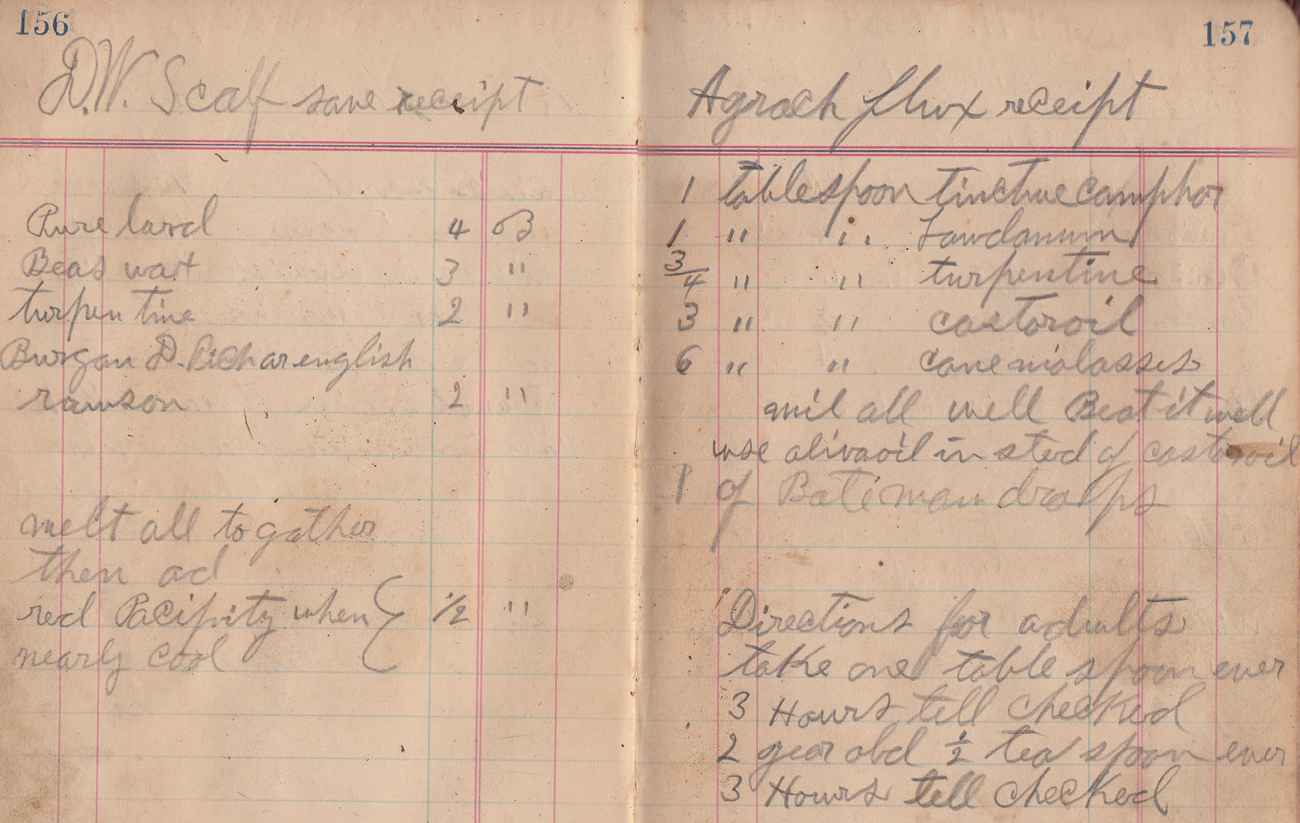 156
D.W. Scalf save receipt
Pure lard 4 oz
Beas wax 3 "
turpentine 2 "
Burgan D. Pich or english
rawson 2 "
melt all to gather
then ad
red Pacipity when 1/2 "
nearly cool
157
flux receipt
1 table spoon tinctue camphor
1 " " Lawdanum
3/4 " " turpentine
3 " " castoroil
6 " " cane molasses
mil all well Beat it well
use olivaoil in sted of castoroil
1 of Bateman draps
Directions for adults
take one table spoon ever
3 Hours tell checked
2 year old 1/2 tea spoon ever
3 Hours tell checked